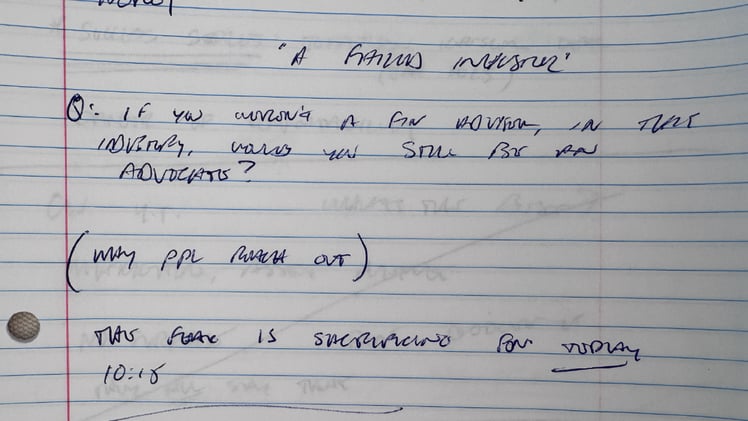 "A FAILED INVESTOR"
Q: IF YOU WEREN'T A FIN ADVISOR, IN THAT
INDUSTRY, WOULD YOU STILL BE AN
ADVOCATE?
(WHY PPL REACH OUT)
THE FEAR IS SACRIFICING FOR TODAY
10:15